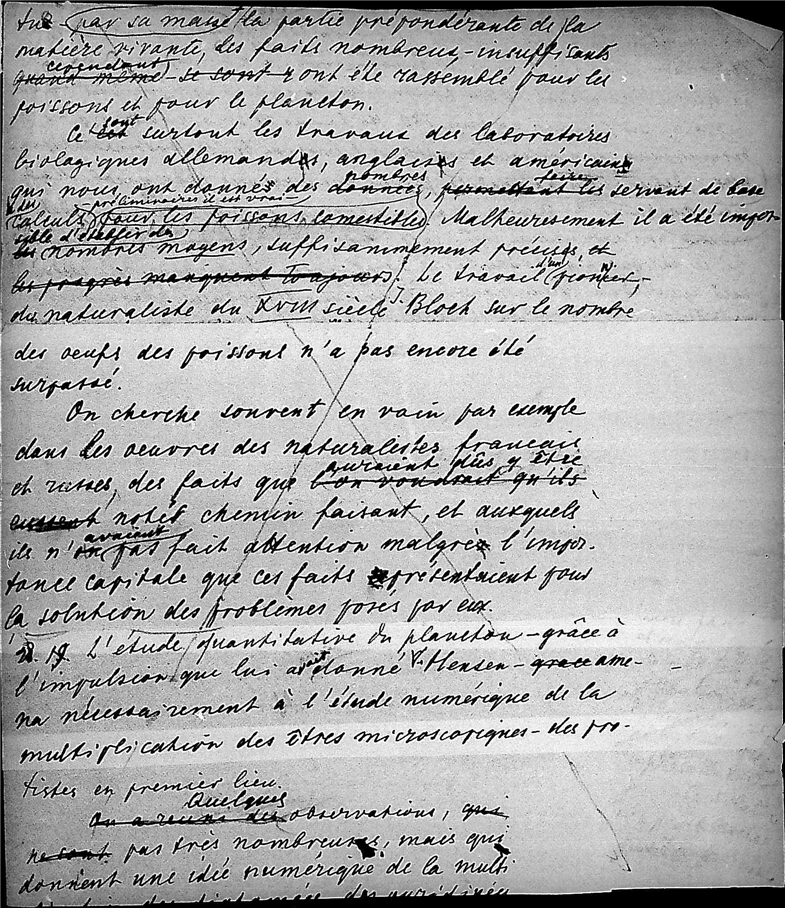 par sa masse la partie prépondérante de la
matière vivante, des faits nombreux, - insuffisants
cependant
quand même - se sont ont été rassemblé pour les
poissons et pour le plancton.
Ce sont surtout les travaux des laboratoires
biologiques allemands, anglaises et américains
nombres
qui nous ont donnés des données, permettant les servant de base
préliminaires il est vrai
calculs pour les poissons comestibles. Malheureusement il a été impos-
sible d'établir des
les nombres moyens, suffisamment précis, et
les progrès manquent toujours. Le travail d'un pionnier, -
du naturaliste du XVIII siècle Bloch sur le nombre
des oeufs des poissons n'a pas encore été
surpassé.
On cherche souvent en vain par exemple
dans les oeuvres des naturalistes francais
auraient dûs y être
et russes, des faits que l'on voudrait qu'ils
eussent notés chemin faisant, et auxquels
avaient
ils n'on pas fait attention malgrès l'impor-
tance capitale que ces faits présentaient pour
la solution des problèmes posés par eux.
19. L'étude quantitative du plancton - grâce à
l'impulsion que lui avait donné V. Hensen - grace ame-
na nécessairement à l'étude numérique de la
multiplication des êtres microscopiques - des pro-
tistes en premier lieu.
Quelques
On a reunis des observations, qui
ne sont pas très nombreuses, mais qui
donnent une idée numérique de la multi